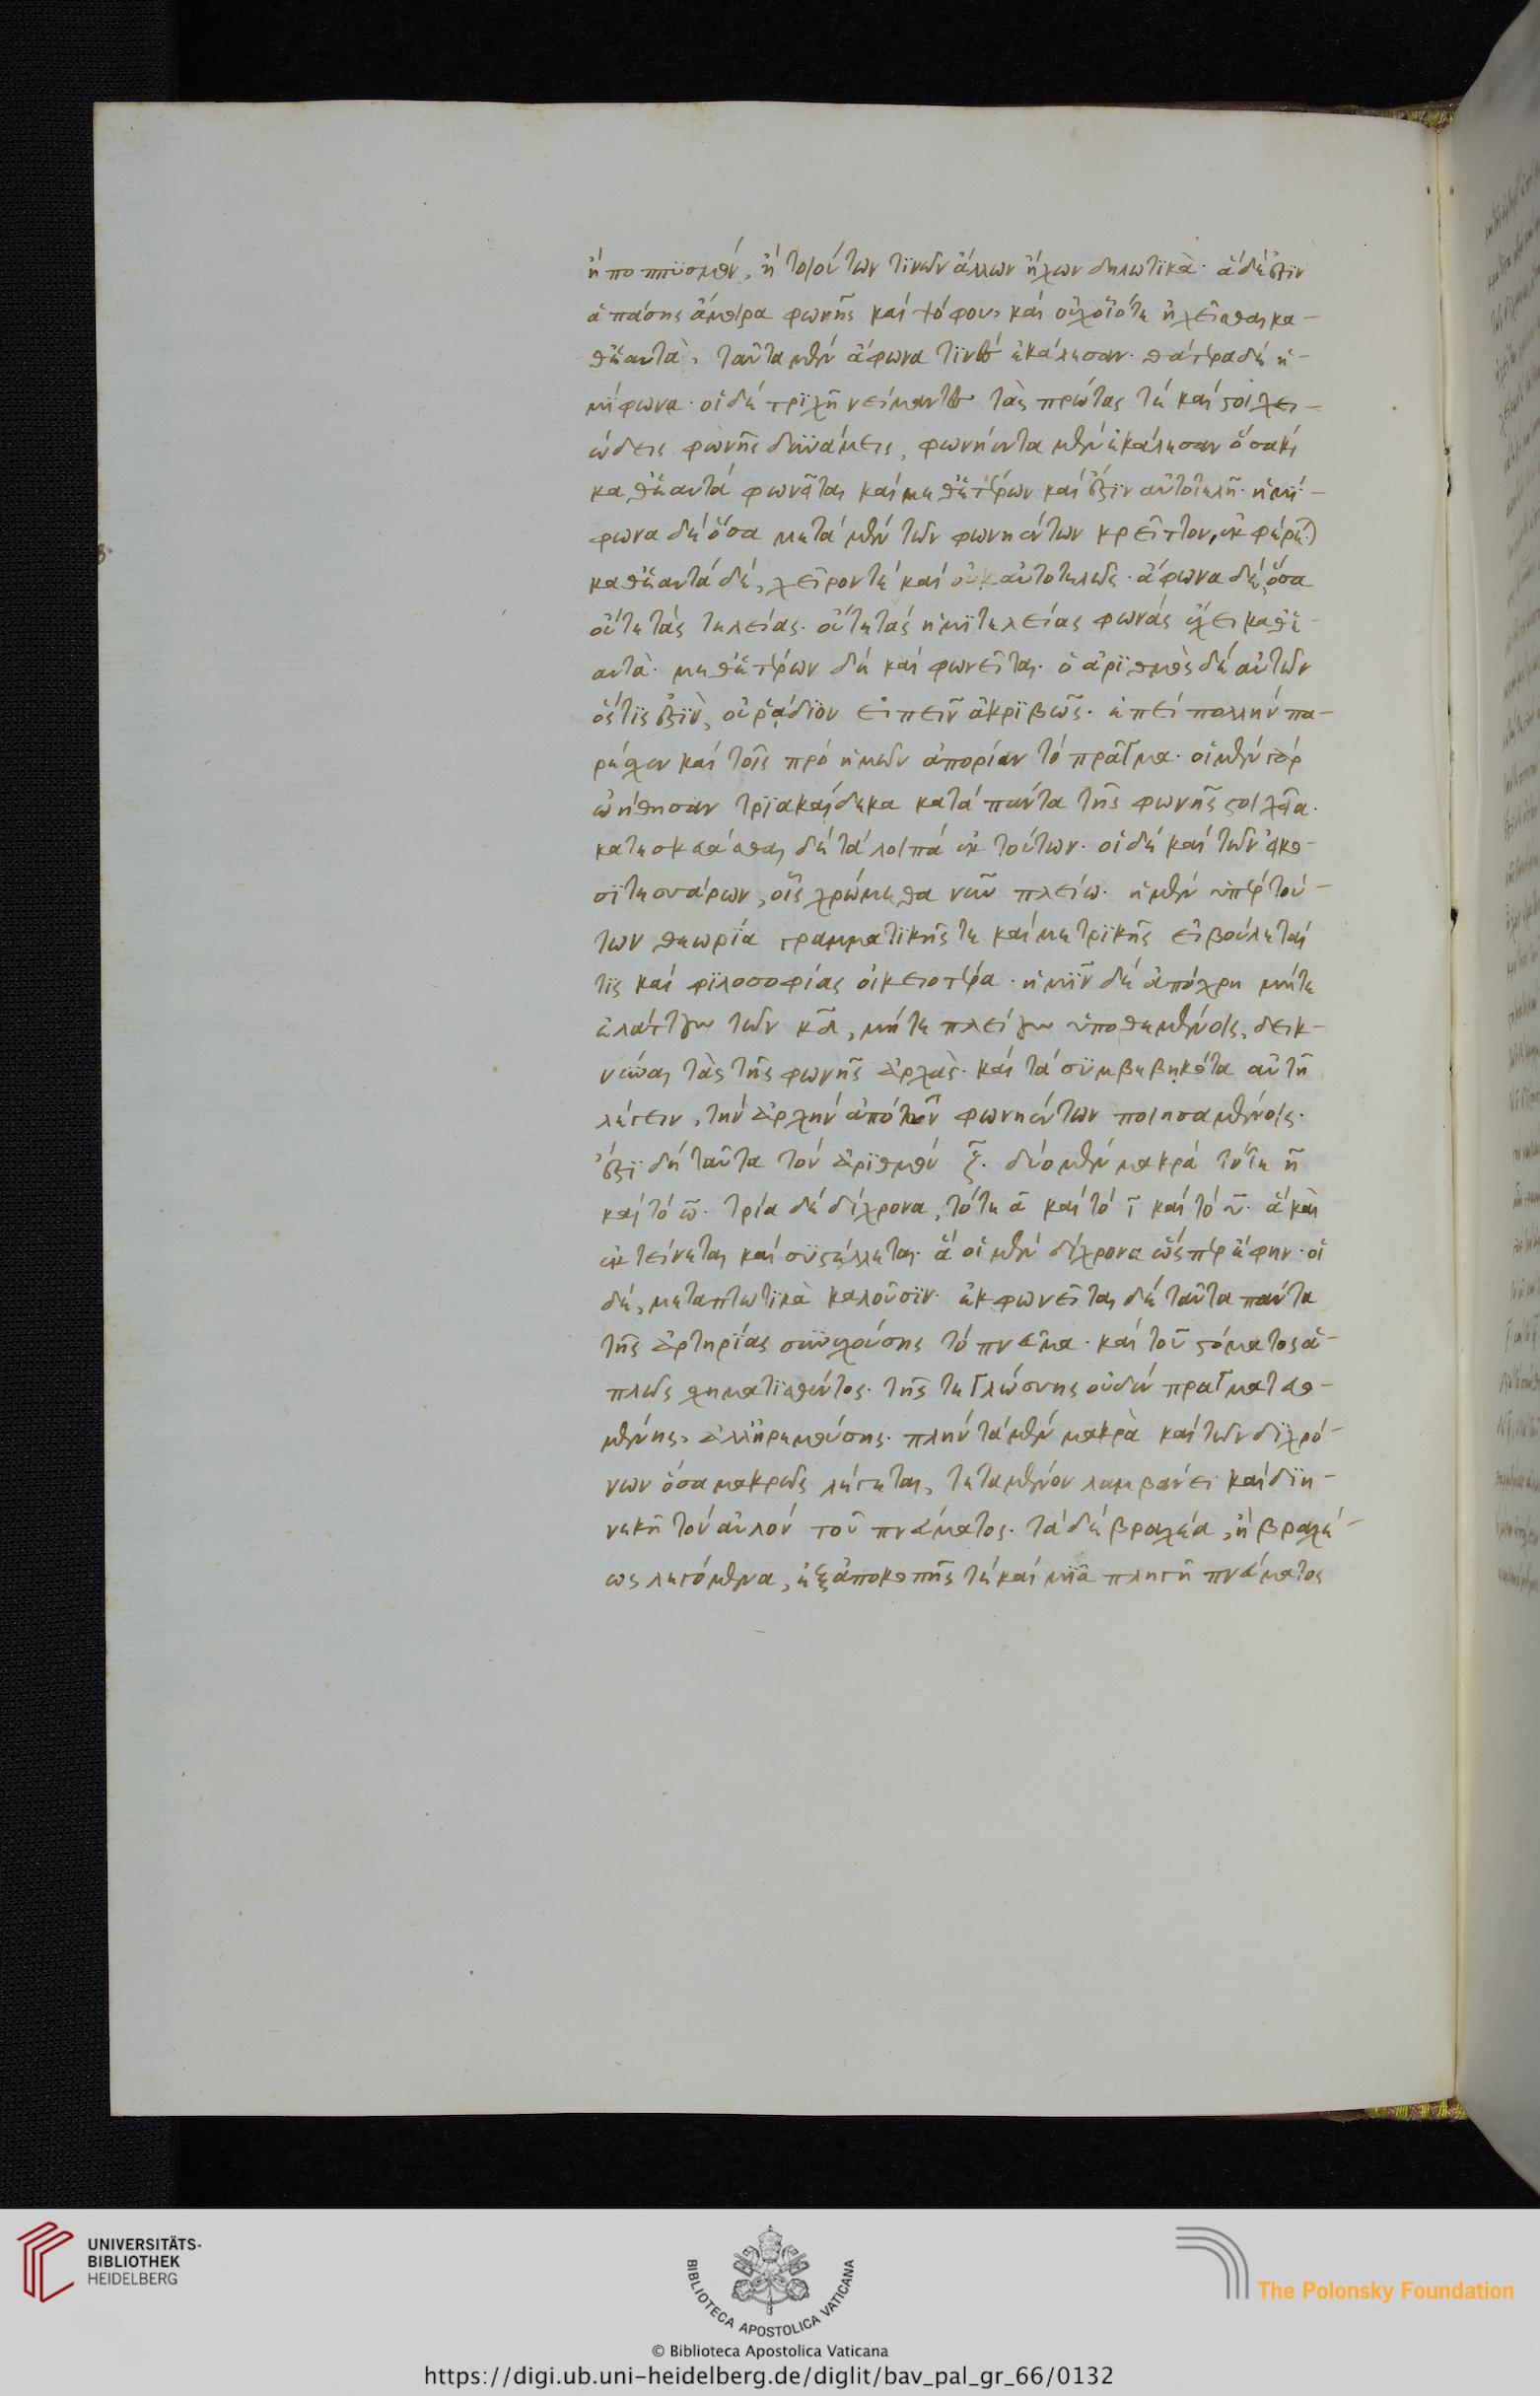 ἢ ποππυσμὸν, ἢ τοιούτων τινῶν ἄλλων ἤχων δηλωτικά· ἃ δέ ἐστιν
ἁπάσης ἄμοιρα φωνῆς καὶ ψόφου, καὶ οὐχ οἷάτε ἠχεῖσθαι κα-
θ' ἑαυτὰ, ταῦτα μὲν ἄφωνα τινὲς ἐκάλεσαν· θάτερα δὲ ἡ-
μίφωνα· οἱ δὲ τριχῆ νείμαντες τὰς πρώτας τὲ καὶ στοιχει-
ώδεις φωνῆς δυνάμεις, φωνήεντα μὲν ἐκάλεσαν ὅσα κὶ
καθ' ἑαυτὰ φωνεῖται καὶ μεθ' ἑτέρων καὶ ἔστιν αὐτοτελῆ· ἡμί-
φωνα δὲ ὅσα μετὰ μὲν τῶν φωνηέντων κρεῖττον, ἐκφέρε()
καθ' ἑαυτὰ δὲ, χεῖρον τὲ καὶ οὐκ αὐτοτελῶς· ἄφωνα δὲ, ὅσα
οὔτε τὰς τελείας· οὔτε τὰς ἡμιτελείας φωνὰς ἔχει καθ' ἑ-
αυτά· μεθ' ἑτέρων δὲ καὶ φωνεῖται· ὁ ἀριθμὸς δὲ αὐτῶν
ὅστις ἐστὶν, οὐ ῥάδιον εἰπεῖν ἀκριβῶς· ἐπεὶ πολλὴν πα-
ρέσχεν καὶ τοῖς πρὸ ἡμῶν ἀπορίαν τὸ πρᾶγμα· οἱ μὲν γὰρ
ᾠήθησαν τριακαίδεκα κατὰ πάντα τῆς φωνῆς στοιχεῖα·
κατεσκευάσθαι δὲ τὰ λοιπὰ ἐκ τούτων· οἱ δὲ καὶ τῶν εἰκο-
σιτεσσάρων, οἷς χρώμεθα νῦν πλείω· ἡ μὲν ὑπὲρ τού-
των θεωρία γραμματικῆς τε καὶ μετρικῆς εἰ βούλεταί
τις καὶ φιλοσοφίας οἰκειοτέρα· ἡμῖν δὲ ἀπόχρη μήτε
ἐλάττω τῶν κδ, μήτε πλείω ὑποθεμένοις, δεικ-
νῦναι τὰς τῆς φωνῆς ἀρχάς· καὶ τὰ συμβεβηκότα αὐτῆ
λέγειν, τὴν ἀρχὴν ἀπὸ τῶν φωνηέντων ποιησαμένοις·
ἔστι δὴ ταῦτα τὸν ἀριθμὸν ζ. δύο μὲν μακρὰ τό τε η
καὶ τὸ ω· τρία δὲ δίχρονα, τό τε α καὶ τὸ ι καὶ τὸ υ· ἃ καὶ
ἐκτείνεται καὶ συστέλλεται· ἃ οἱ μὲν δίχρονα ὥσπερ ἔφην· οἱ
δὲ, μεταπτωτικὰ καλοῦσιν· ἐκφωνεῖται δὲ ταῦτα πάντα
τῆς ἀρτηρίας συνεχούσης τὸ πνεῦμα· καὶ τοῦ στόματος ἁ-
πλῶς σχηματισθέντος· τῆς τε γλώσσης οὐδὲν πραγματευο-
μένης, ἀλλ' ἠρεμούσης· πλὴν τὰ μὲν μακρὰ καὶ τῶν διχρό-
νων ὅσα μακρῶς λέγεται, τεταμένον λαμβάνει καὶ διη-
νεκῆ τὸν αὐλὸν τοῦ πνεύματος· τὰ δὲ βραχέα, ἢ βραχέ-
ως λεγόμενα, ἐξ ἀποκοπῆς τὲ καὶ μιᾷ πληγῆ πνεύματος
UNIVERSITÄTS-
BIBLIOTHEK
HEIDELBERG
BIBLIOTECA APOSTOLICA VATICANA
The Polonsky Foundation
© Biblioteca Apostolica Vaticana
https://digi.ub.uni-heidelberg.de/diglit/bav_pal_gr_66/0132